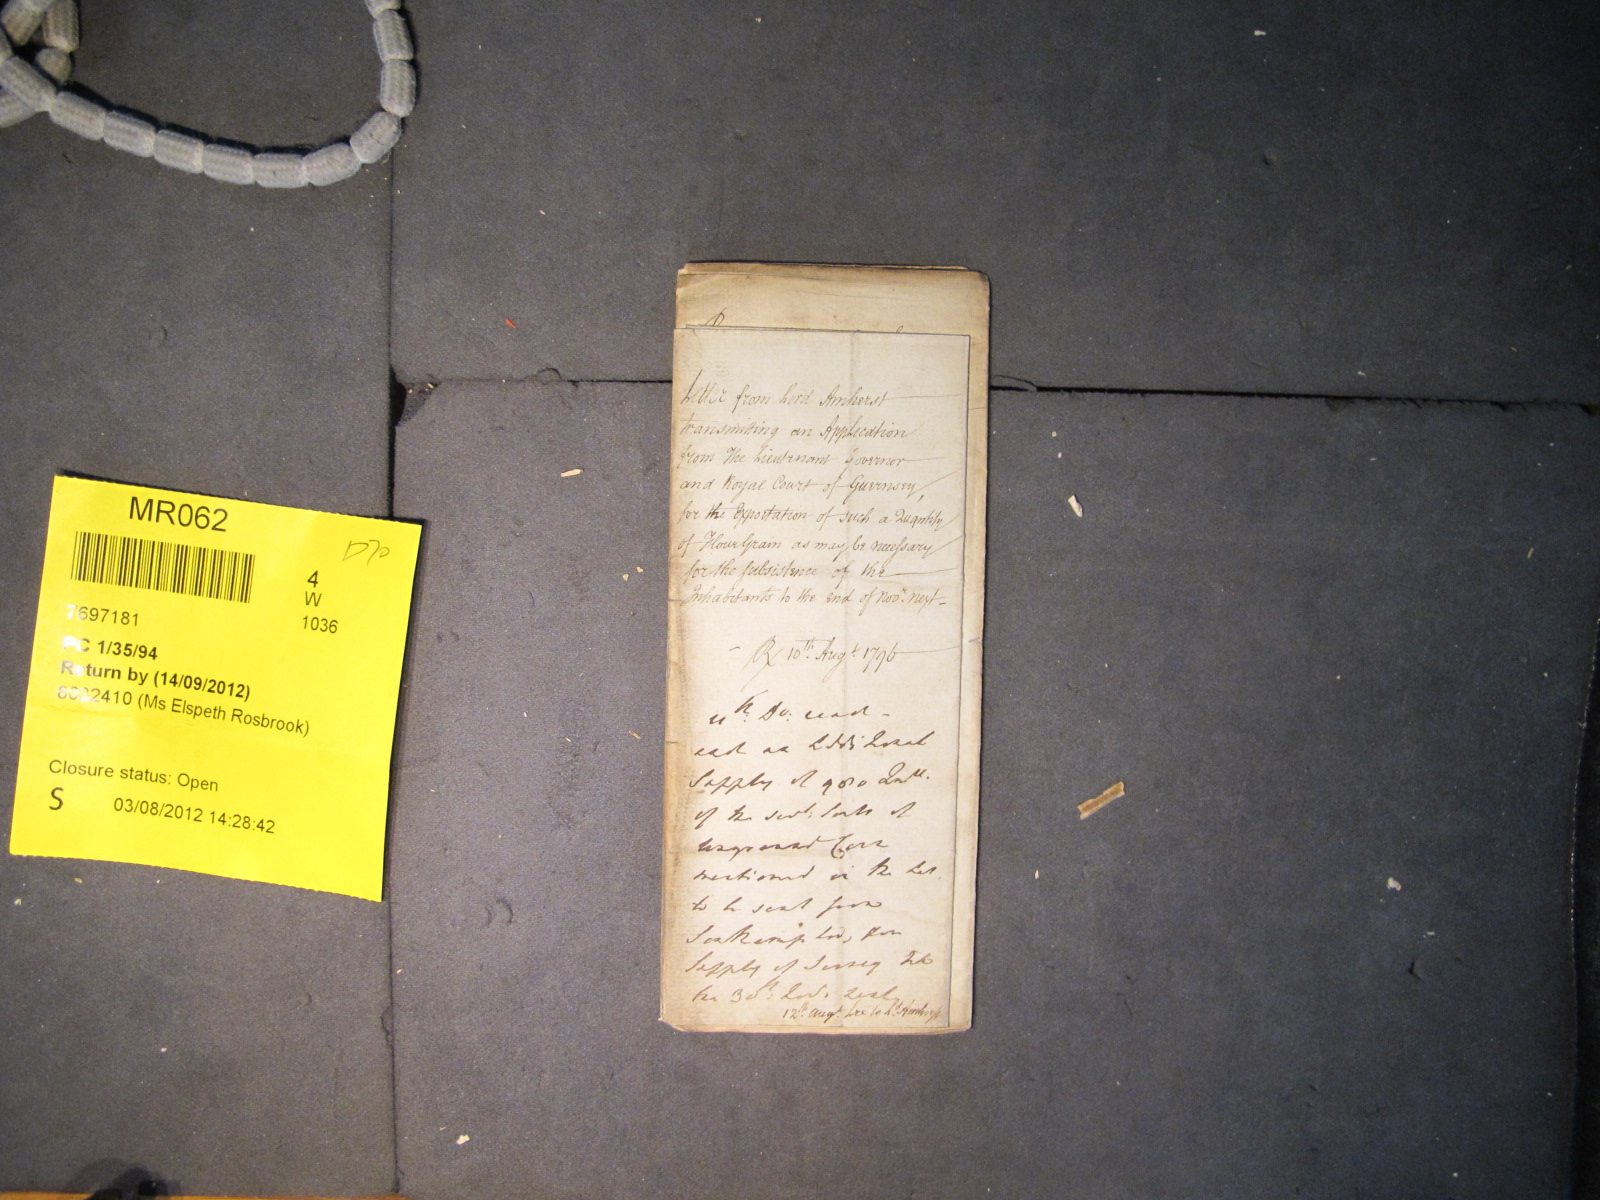 MR062
D70
4
W
1036
7697181
PC 1/35/94
Return by (14/09/2012)
8622410 (Ms Elspeth Rosbrook)
Closure status: Open
S 03/08/2012 14:28:42
Letter from Lord Amherst
transmitting an Application
from the Lieutenant Governor
and Royal Court of Guernsey,
for the Exportation of such a Quantity
of Flour Grain as may be necessary
for the subsistence of the
Inhabitants to the end of Novr. next
Rx 10th. Augt. 1796
11th. Do. read
and an additional
Supply of 9050
of the sevl. sorts of
unground Corn
mentioned in the
to be sent from
Southampton, for
Supply of Jersey
the 30th. Novr.
12th. Augt. Lre to Ld. Amherst